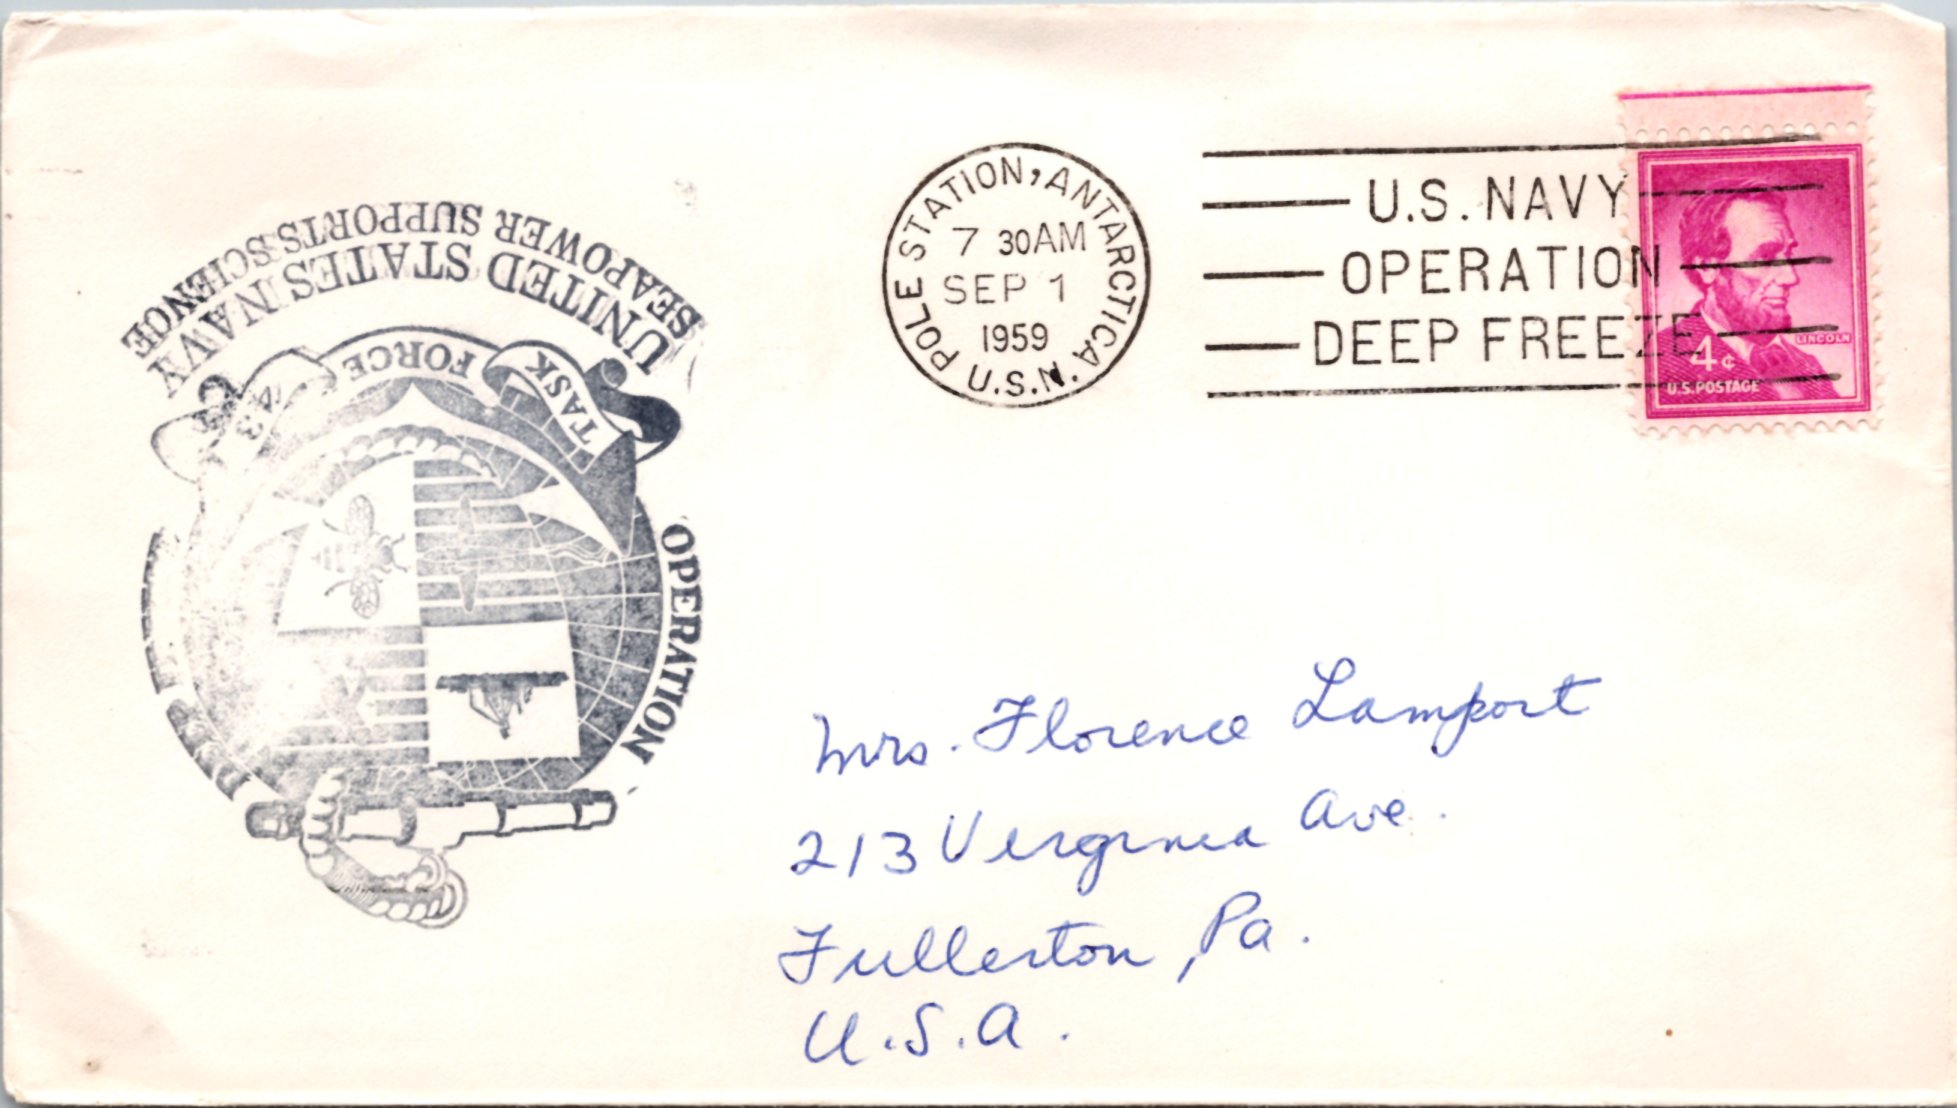 UNITED STATES NAVY
SEAPOWER SUPPORTS SCIENCE
TASK FORCE 43
OPERATION
POLE STATION, ANTARCTICA U.S.N.
7 30AM
SEP 1
1959
U.S. NAVY
OPERATION
DEEP FREEZE
LINCOLN
4¢
U.S. POSTAGE
Mrs. Florence Lamport
213 Virginia Ave.
Fullerton, Pa.
U.S.A.